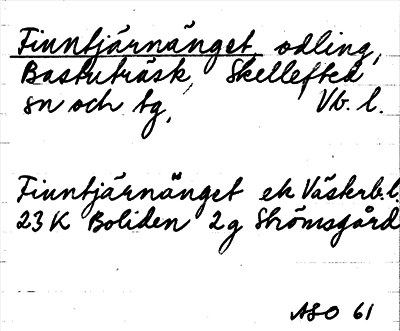 Finntjärnänget odling,
Bastuträsk, Skellefteå
sn och tg,
Vb. l.
Finntjärnänget ek Västerb.l.
23 K Boliden 2g Strömsgård
ASO 61